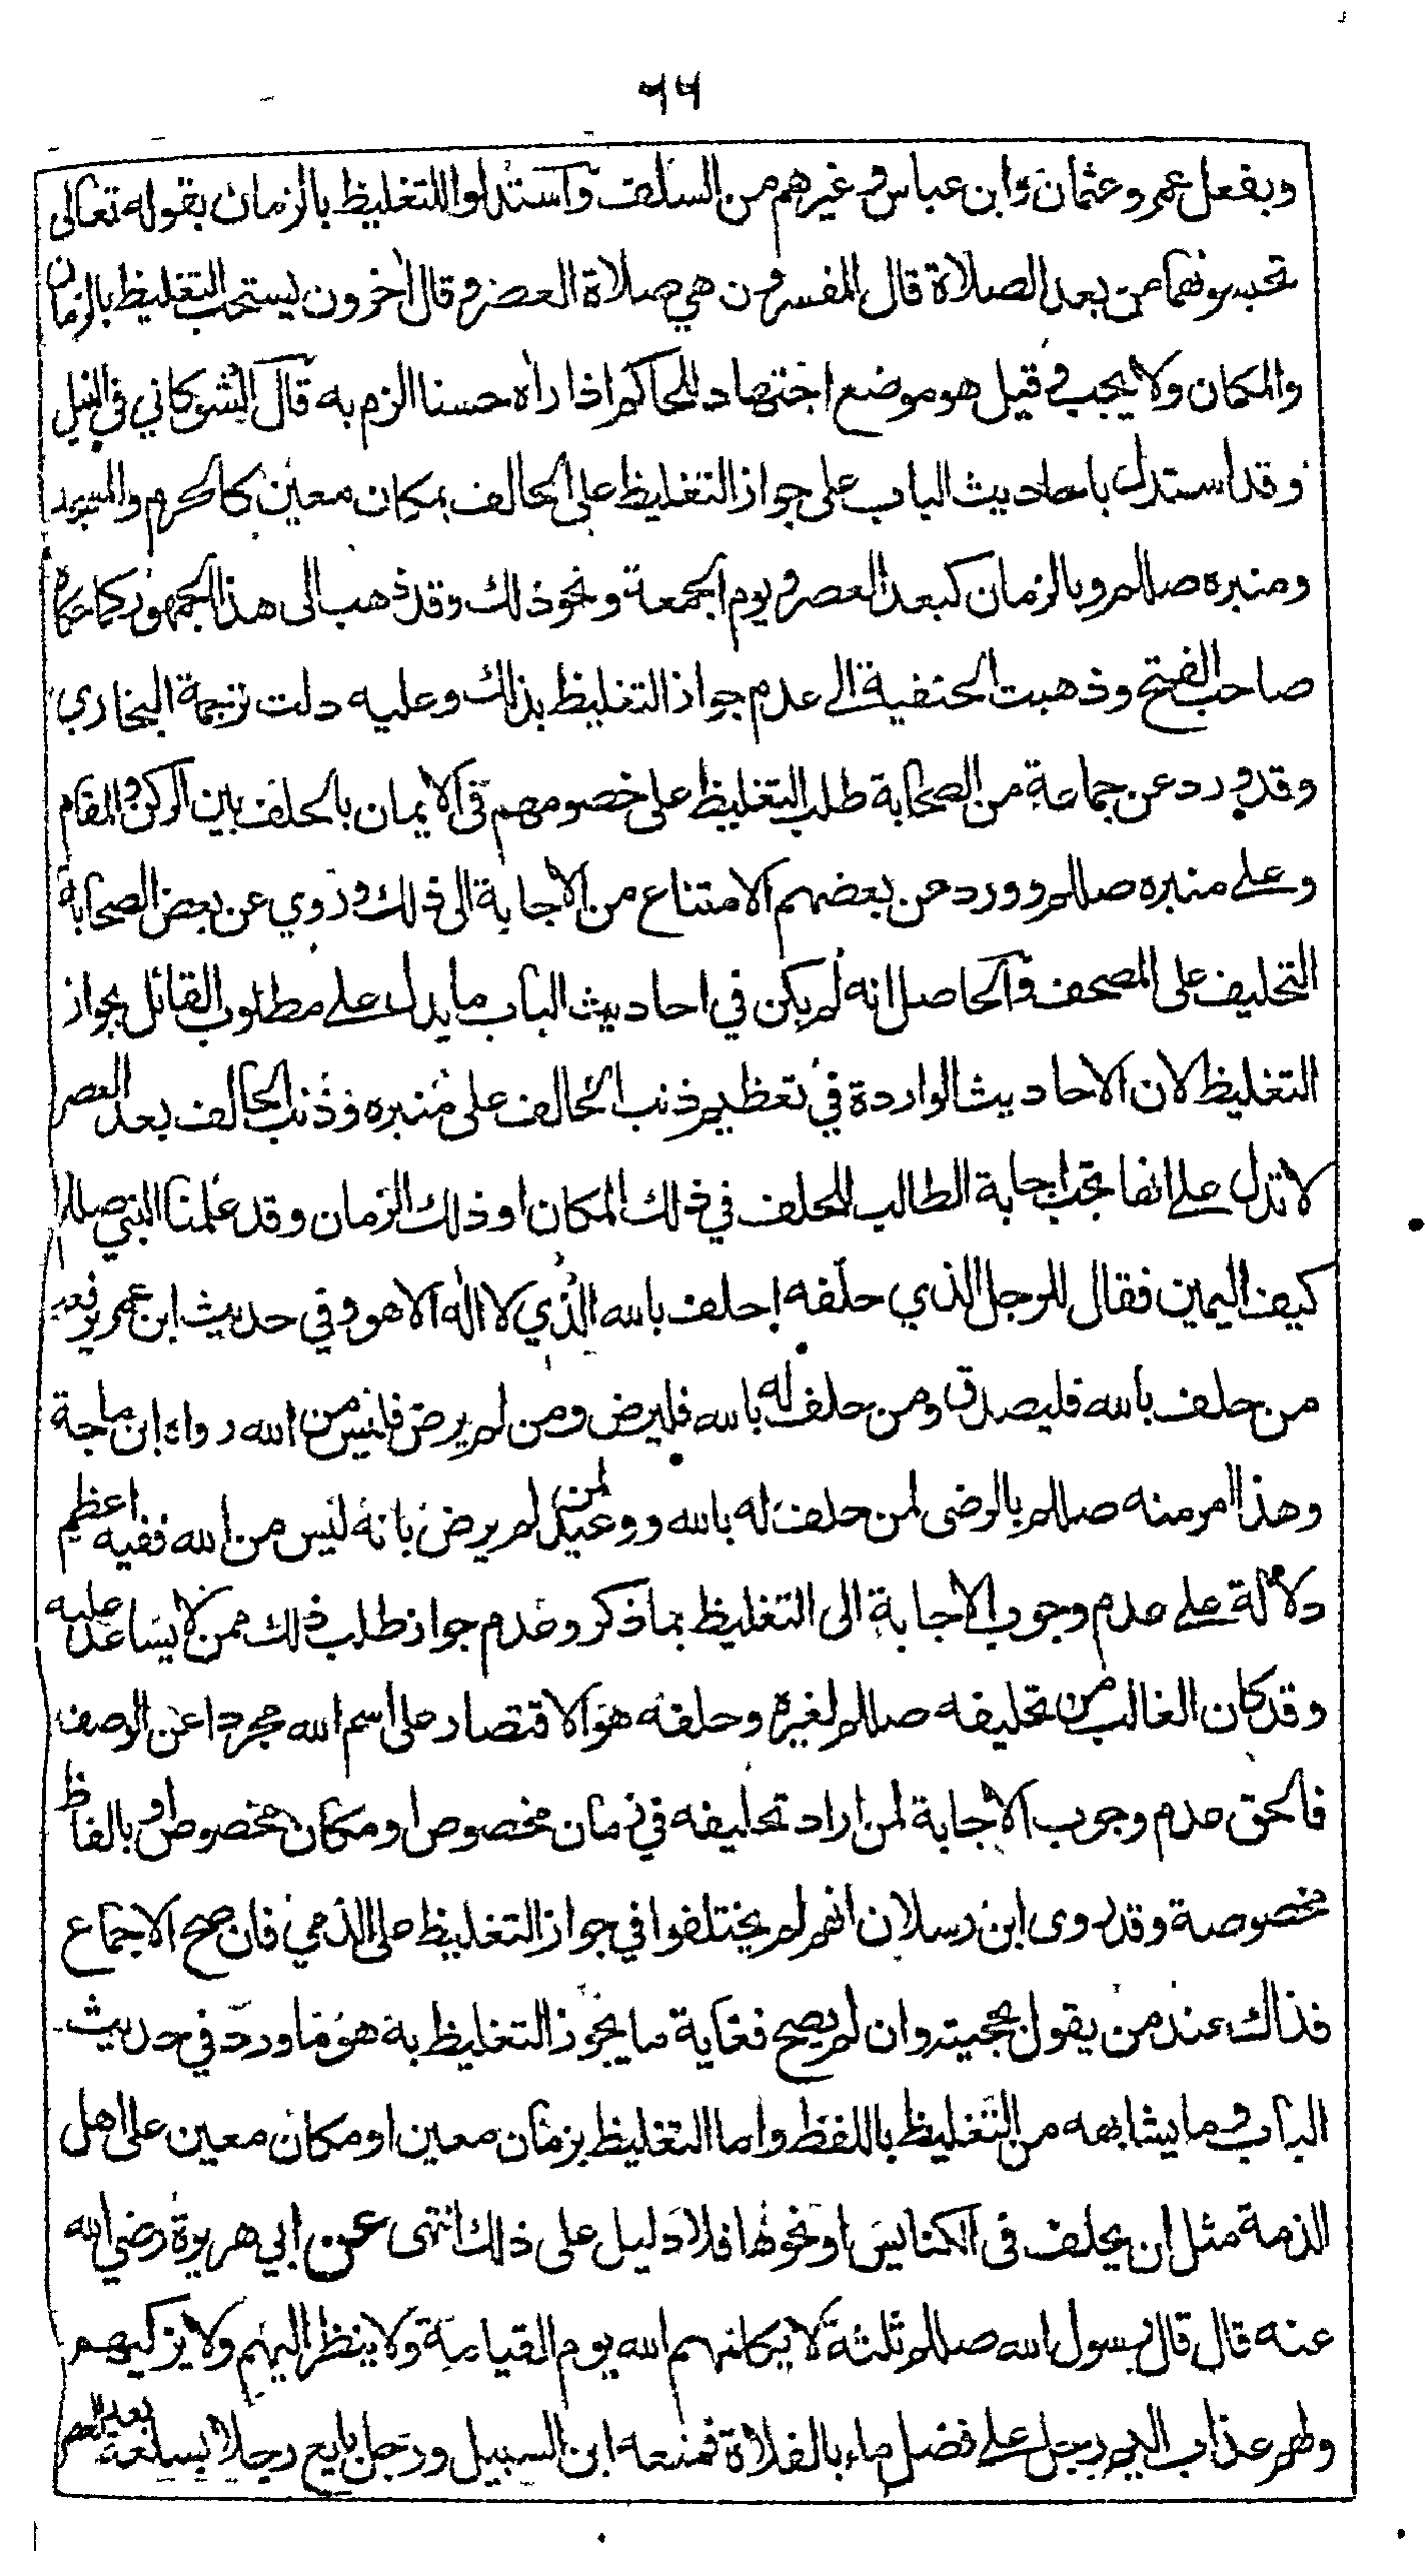 ٦٦
وبفعل عمر وعثمان وابن عباس وغيرهم من السلف واستدلوا للتغليظ بالزمان بقوله تعالى
تحبسونهما من بعد الصلاة قال المفسرون هي صلاة العصر وقال اخرون يستحب التغليظ بالزمان
والمكان ولا يجب وقيل هو موضع اجتهاد للحاكم اذا راه حسنا الزم به قال الشوكاني في النيل
وقد استدل باحاديث الباب على جواز التغليظ على الحالف بمكان معين كالحرم والمسجد
ومنبره صللم وبالزمان كبعد العصر ويوم الجمعة ونحو ذلك وقد ذهب الى هذا الجمهور كما حكاه
صاحب الفتح وذهبت الحنفية الى عدم جواز التغليظ بذلك وعليه دلت ترجمة البخاري
وقد ورد عن جماعة من الصحابة طلب التغليظ على خصومهم في الايمان بالحلف بين الركن والمقام
وعلى منبره صللم وورد عن بعضهم الامتناع من الاجابة الى ذلك وروي عن بعض الصحابة
التحليف على المصحف والحاصل انه لم يكن في احاديث الباب ما يدل على مطلوب القائل بجواز
التغليظ لان الاحاديث الواردة في تعظيم ذنب الحالف على منبره وذنب الحالف بعد العصر
لا تدل على انها تجب اجابة الطالب للحلف في ذلك المكان او ذلك الزمان وقد علمنا النبي صللم
كيف اليمين فقال للرجل الذي حلفه احلف بالله الذي لا اله الا هو وفي حديث ابن عمر يرفعه
من حلف بالله فليصدق ومن حلف له بالله فليرض ومن لم يرض فليس من الله رواه ابن ماجة
وهذا امر منه صللم بالرضى لمن حلف له بالله ووعيد لمن لم يرض بانه ليس من الله ففيه اعظم
دلالة على عدم وجوب الاجابة الى التغليظ بما ذكر وعدم جواز طلب ذلك ممن لا يساعد عليه
وقد كان الغالب من تحليفه صللم لغيره وحلفه هو الاقتصار على اسم الله مجردا عن الوصف
فالحق عدم وجوب الاجابة لمن اراد تحليفه في زمان مخصوص او مكان مخصوص او بالفاظ
مخصوصة وقد روى ابن رسلان انهم لم يختلفوا في جواز التغليظ على الذمي فان صح الاجماع
فذاك عند من يقول بحجيته وان لم يصح فغاية ما يجوز التغليظ به هو ما ورد في حديث
الباب وما يشابهه من التغليظ باللفظ واما التغليظ بزمان معين او مكان معين على اهل
الذمة مثل ان يحلف في الكنايس او نحوها فلا دليل على ذلك انتهى عن ابي هريرة رضي الله
عنه قال قال رسول الله صللم ثلثة لا يكلمهم الله يوم القيامة ولا ينظر اليهم ولا يزكيهم
ولهم عذاب اليم رجل على فضل ماء بالفلاة فمنعه ابن السبيل ورجل بايع رجلا بسلعة بعد العصر